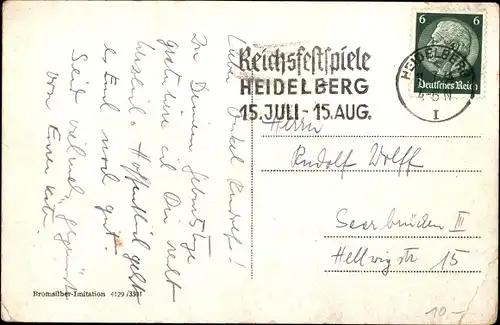 Lieber Onkel Rudolf!
Zu Deinem Geburtstage
gratuliere ich Dir recht
herzlich. Hoffentlich geht
es Euch noch gut.
Seid vielmals gegrüßt
von Eurer Käte.
Reichsfestspiele
HEIDELBERG
15. JULI - 15. AUG.
HEIDELBERG
4-5 N
I
6 6
Deutsches Reich
Herrn
Rudolf Wolff
Saarbrücken III
Hellwigstr 15
Bromsilber-Imitation 4129/3301
10-